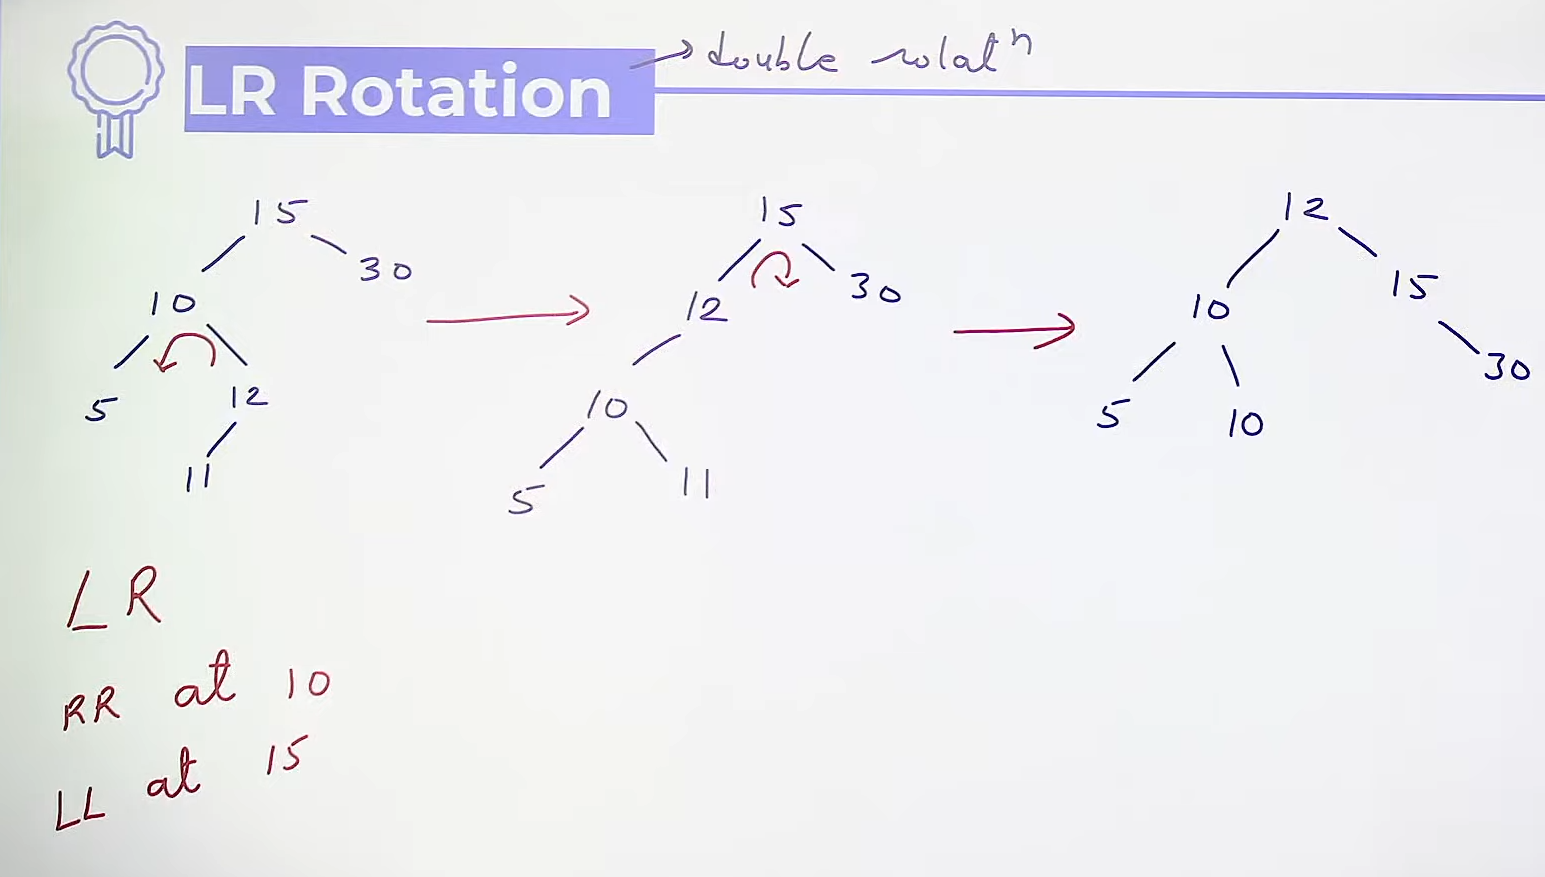 LR Rotation
double rotatⁿ
15
10
30
5
12
11
15
12
30
10
5
11
12
10
15
5
10
30
LR
RR at 10
LL at 15